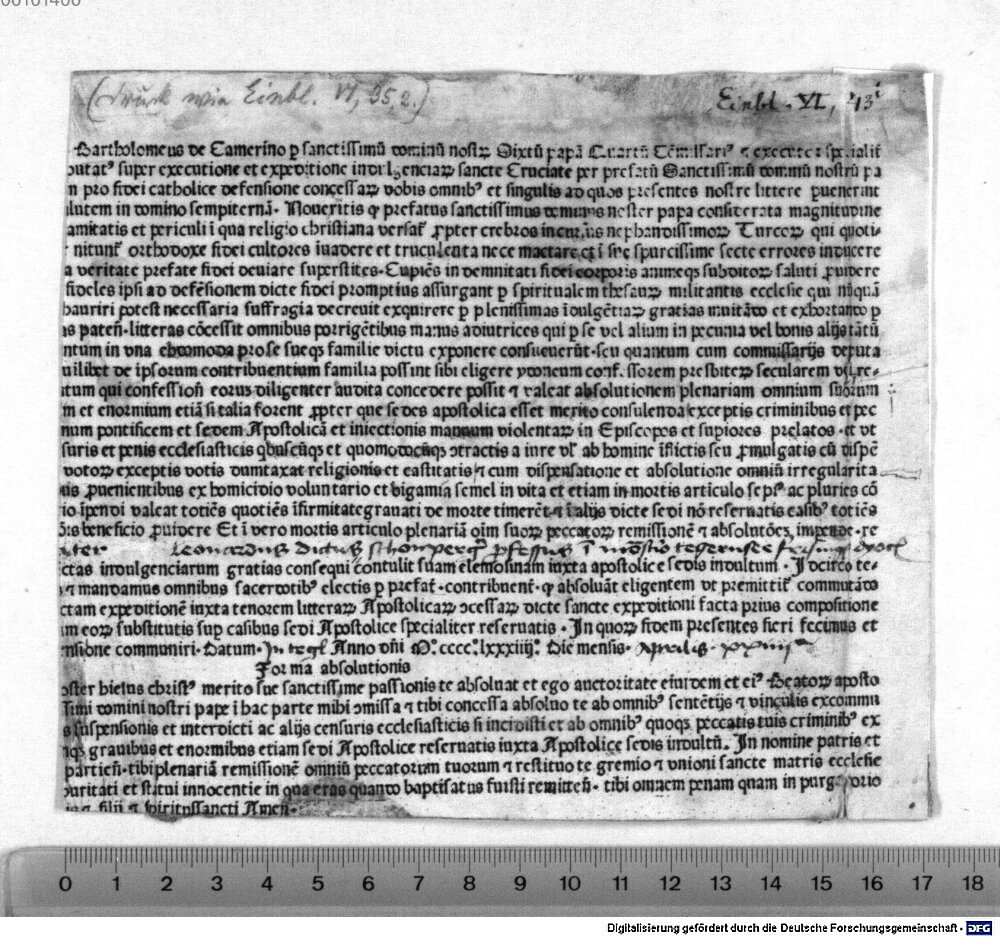 00101400
(Druck wie Einbl. VI, 35,2.)
Einbl. VI, 43i
Bartholomeus de Camerino ꝑ sanctissimū dominū nostꝝ Sixtū papā Quartū Cōmissariꝰ ⁊ executor specialit
putatꝰ super executione et expeditione indulgenciaꝝ sancte Cruciate per prefatū Sanctissimū dominū nostrū pa
n pro fidei catholice defensione concessaꝝ vobis omnibꝰ et singulis ad quos presentes nostre littere puenerint
lutem in domino sempiternā. Noueritis ꝙ prefatus sanctissimus dominus noster papa considerata magnitudine
amitatis et periculi ī qua religio christiana versat᷑ ꝓpter crebros incursus nephandissimoꝝ Turcoꝝ qui quoti-
nitunt᷑ orthodoxe fidei cultores īuadere et truculenta nece mactare et ī sue spurcissime secte errores inducere
a veritate prefate fidei deuiare superstites. Cupiēs indemnitati fidei corporis animeqꝫ subditoꝝ saluti ꝓuidere
fideles ipsi ad defēsionem dicte fidei promptius assurgant ꝑ spiritualem thesauꝝ militantis ecclesie qui nūquā
hauriri potest necessaria suffragia decreuit exquirere ꝑ plenissimas īdulgētiaꝝ gratias inuitādo et exhortando ꝑ
as pateñ. litteras cōcessit omnibus porrigētibus manus adiutrices qui ꝑ se vel alium in pecunia vel bonis alijs tātū
ntum in vna ebdomoda pro se sueqꝫ familie victu exponere consueuerūt. seu quantum cum commissarijs deputa
uilibet de ipsorum contribuentium familia possint sibi eligere ydoneum confessorem presbiteꝝ secularem vel re-
itum qui confessioñ eorus diligenter audita concedere possit ⁊ valeat absolutionem plenariam omnium suorum
m et enormium etiā si talia forent ꝓpter que sedes apostolica esset merito consulenda exceptis criminibus et pec
num pontificem et sedem Apostolicā et iniectionis manuum violentaꝝ in Episcopos et supiores prelatos. et vt
suris et penis ecclesiasticis qbuscūqꝫ et quomodocūqꝫ ↄtractis a iure vł ab homine īflictis seu ꝓmulgatis cū dispē
votoꝝ exceptis votis dumtaxat religionis et castitatis ⁊ cum dispensatione et absolutione omniū irregularita
us ꝓuenientibus ex homicidio voluntario et bigamia semel in vita et etiam in mortis articulo sepiꝰ ac pluries cō
io īpendi valeat totiēs quotiēs īfirmitate grauati de morte timerēt ⁊ ī alijs dicte sedi nō reseruatis casibꝰ totiēs
beneficio ꝓuidere Et ī vero mortis articulo plenariā oīm suoꝝ peccatoꝝ remissionē ⁊ absolutōez impende. re
ater leonardus dictus
ctas indulgenciarum gratias consequi contulit suam elemosinam iuxta apostolice sedis indultum. Idcirco te-
⁊ mandamus omnibus sacerdotibꝰ electis ꝑ prefat. contribuent. ꝙ absoluāt eligentem vt premittit᷑ commutādo
ctam expeditionē iuxta tenorem litteraꝝ Apostolicaꝝ ↄcessaꝝ dicte sancte expeditioni facta prius compositione
um eoꝝ substitutis sup casibus sedi Apostolice specialiter reseruatis. In quoꝝ fidem presentes fieri fecimus et
nsione communiri. Datum. Anno dñi M. cccc. lxxxiiij. Die mensis. Aprilis. xxiiij
Forma absolutionis
oster hiesus christꝰ merito sue sanctissime passionis te absoluat et ego auctoritate eiusdem et eiꝰ Beatoꝝ aposto
simi domini nostri pape ī hac parte mihi ↄmissa ⁊ tibi concessa absoluo te ab omnibꝰ sentētijs ⁊ vinculis excommu
s suspensionis et interdicti ac alijs censuris ecclesiasticis si incidisti et ab omnibꝰ quoqꝫ peccatis tuis criminibꝰ ex
nqꝫ grauibus et enormibus etiam sedi Apostolice reseruatis iuxta Apostolice sedis indultū. In nomine patris et
particeñ. tibi plenariā remissionē omniū peccatorum tuorum ⁊ restituo te gremio ⁊ vnioni sancte matris ecclesie
puritati et statui innocentie in qua eras quando baptisatus fuisti remitteñ. tibi omnem penam quam in purgatorio
filij ⁊ spiritussancti Amen.
0 1 2 3 4 5 6 7 8 9 10 11 12 13 14 15 16 17 18
Digitalisierung gefördert durch die Deutsche Forschungsgemeinschaft - DFG